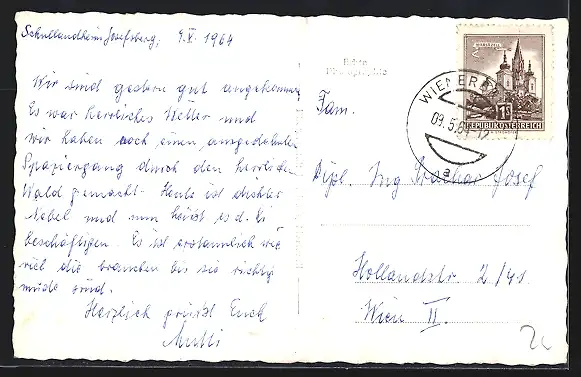 Schullandheim Josefsberg, 9.V. 1964
Wir sind gestern gut angekommen
Es war herrliches Wetter und
wir haben noch einen ausgedehnten
Spaziergang durch den herrlichen
Wald gemacht. Heute ist dichter
Nebel und nun heißt es d. K.
beschäftigen. Es ist erstaunlich wie
viel die brauchen bis sie richtig
müde sind.
Herzlich grüßt Euch
Mutti
Echte
Photographie
MARIAZELL
1S
REPUBLIK ÖSTERREICH
WIENERB
09.5.64-12
a
Fam.
Dipl. Ing Josef
Hollandstr. 2/41
Wien II.